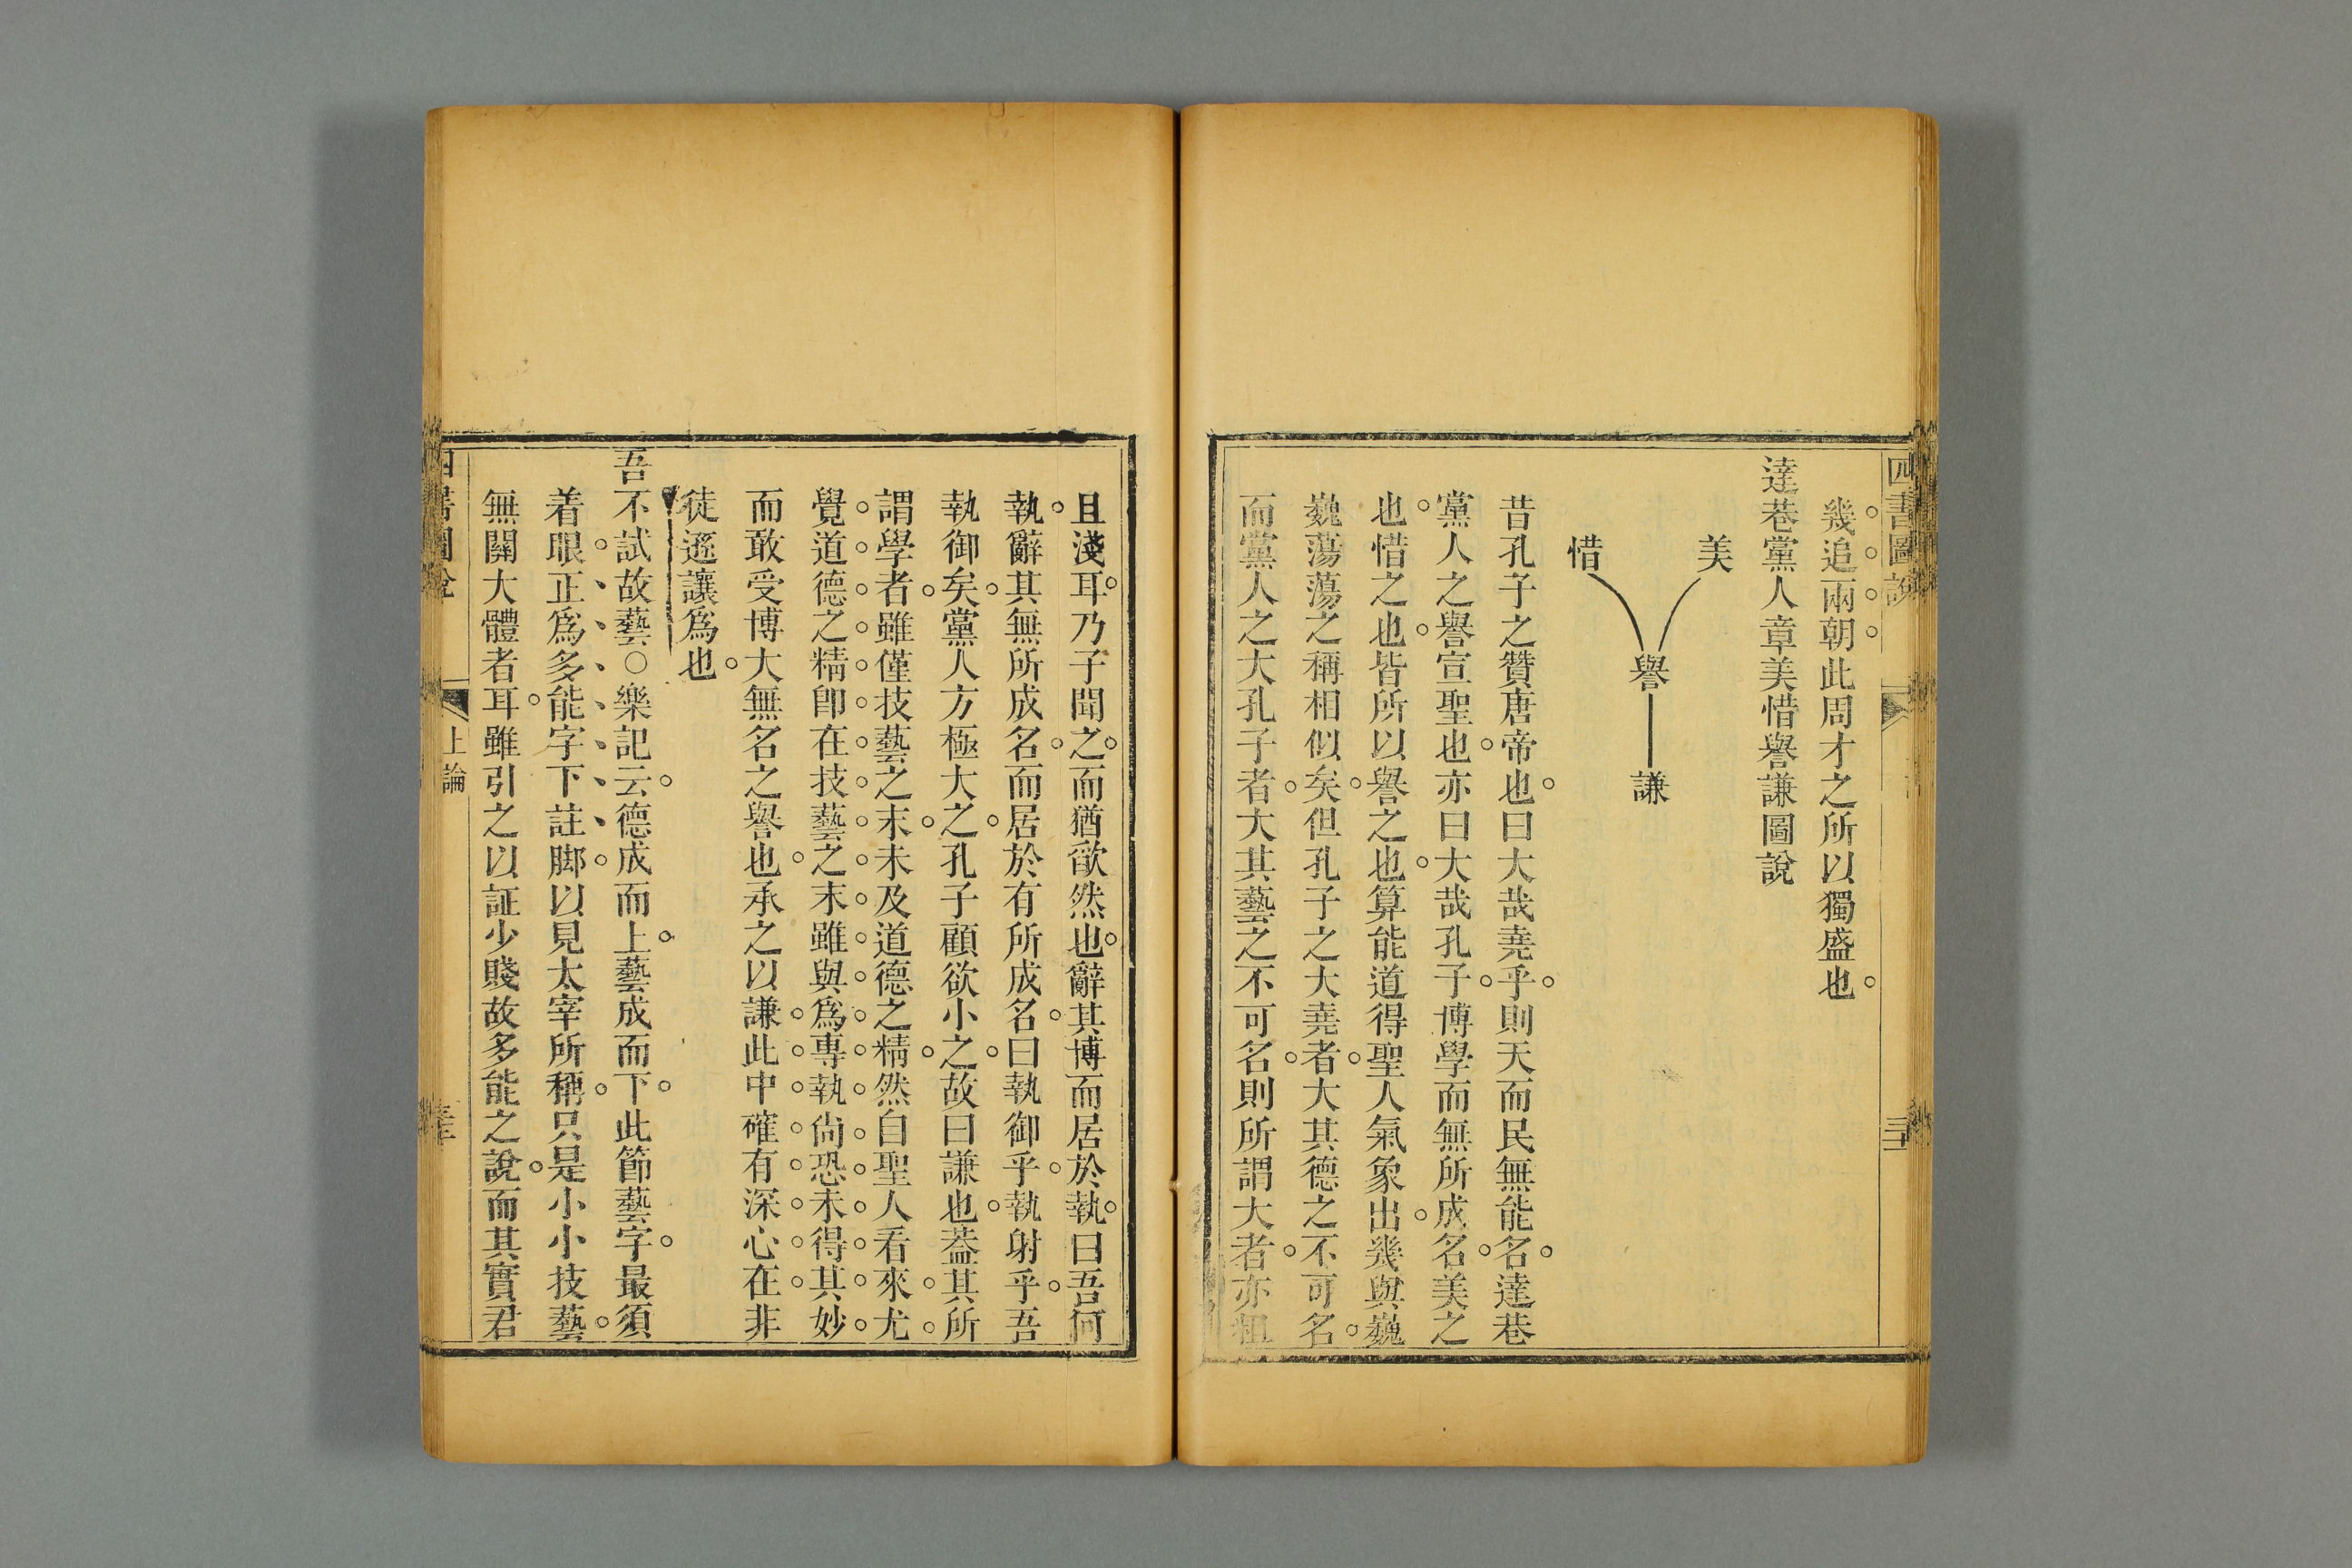 四書圖說
幾追兩朝此周才之所以獨盛也
達巷黨人章美惜譽謙圖說
美
惜
譽
謙
昔孔子之贊唐帝也曰大哉堯乎則天而民無能名達巷
黨人之譽宣聖也亦曰大哉孔子博學而無所成名美之
也惜之也皆所以譽之也算能道得聖人氣象出幾與巍
巍蕩蕩之稱相似矣但孔子之大堯者大其德之不可名
而黨人之大孔子者大其藝之不可名則所謂大者亦粗
且淺耳乃子聞之而猶欿然也辭其博而居於執曰吾何
執辭其無所成名而居於有所成名曰執御乎執射乎吾
執御矣黨人方極大之孔子顧欲小之故曰謙也葢其所
謂學者雖僅技藝之末未及道德之精然自聖人看來尤
覺道德之精卽在技藝之末雖與爲專執尙恐未得其妙
而敢受博大無名之譽也承之以謙此中確有深心在非
徒遜讓爲也
吾不試故藝○樂記云德成而上藝成而下此節藝字最須
着眼正爲多能字下註脚以見太宰所稱只是小小技藝
無關大體者耳雖引之以証少賤故多能之說而其實君
上論